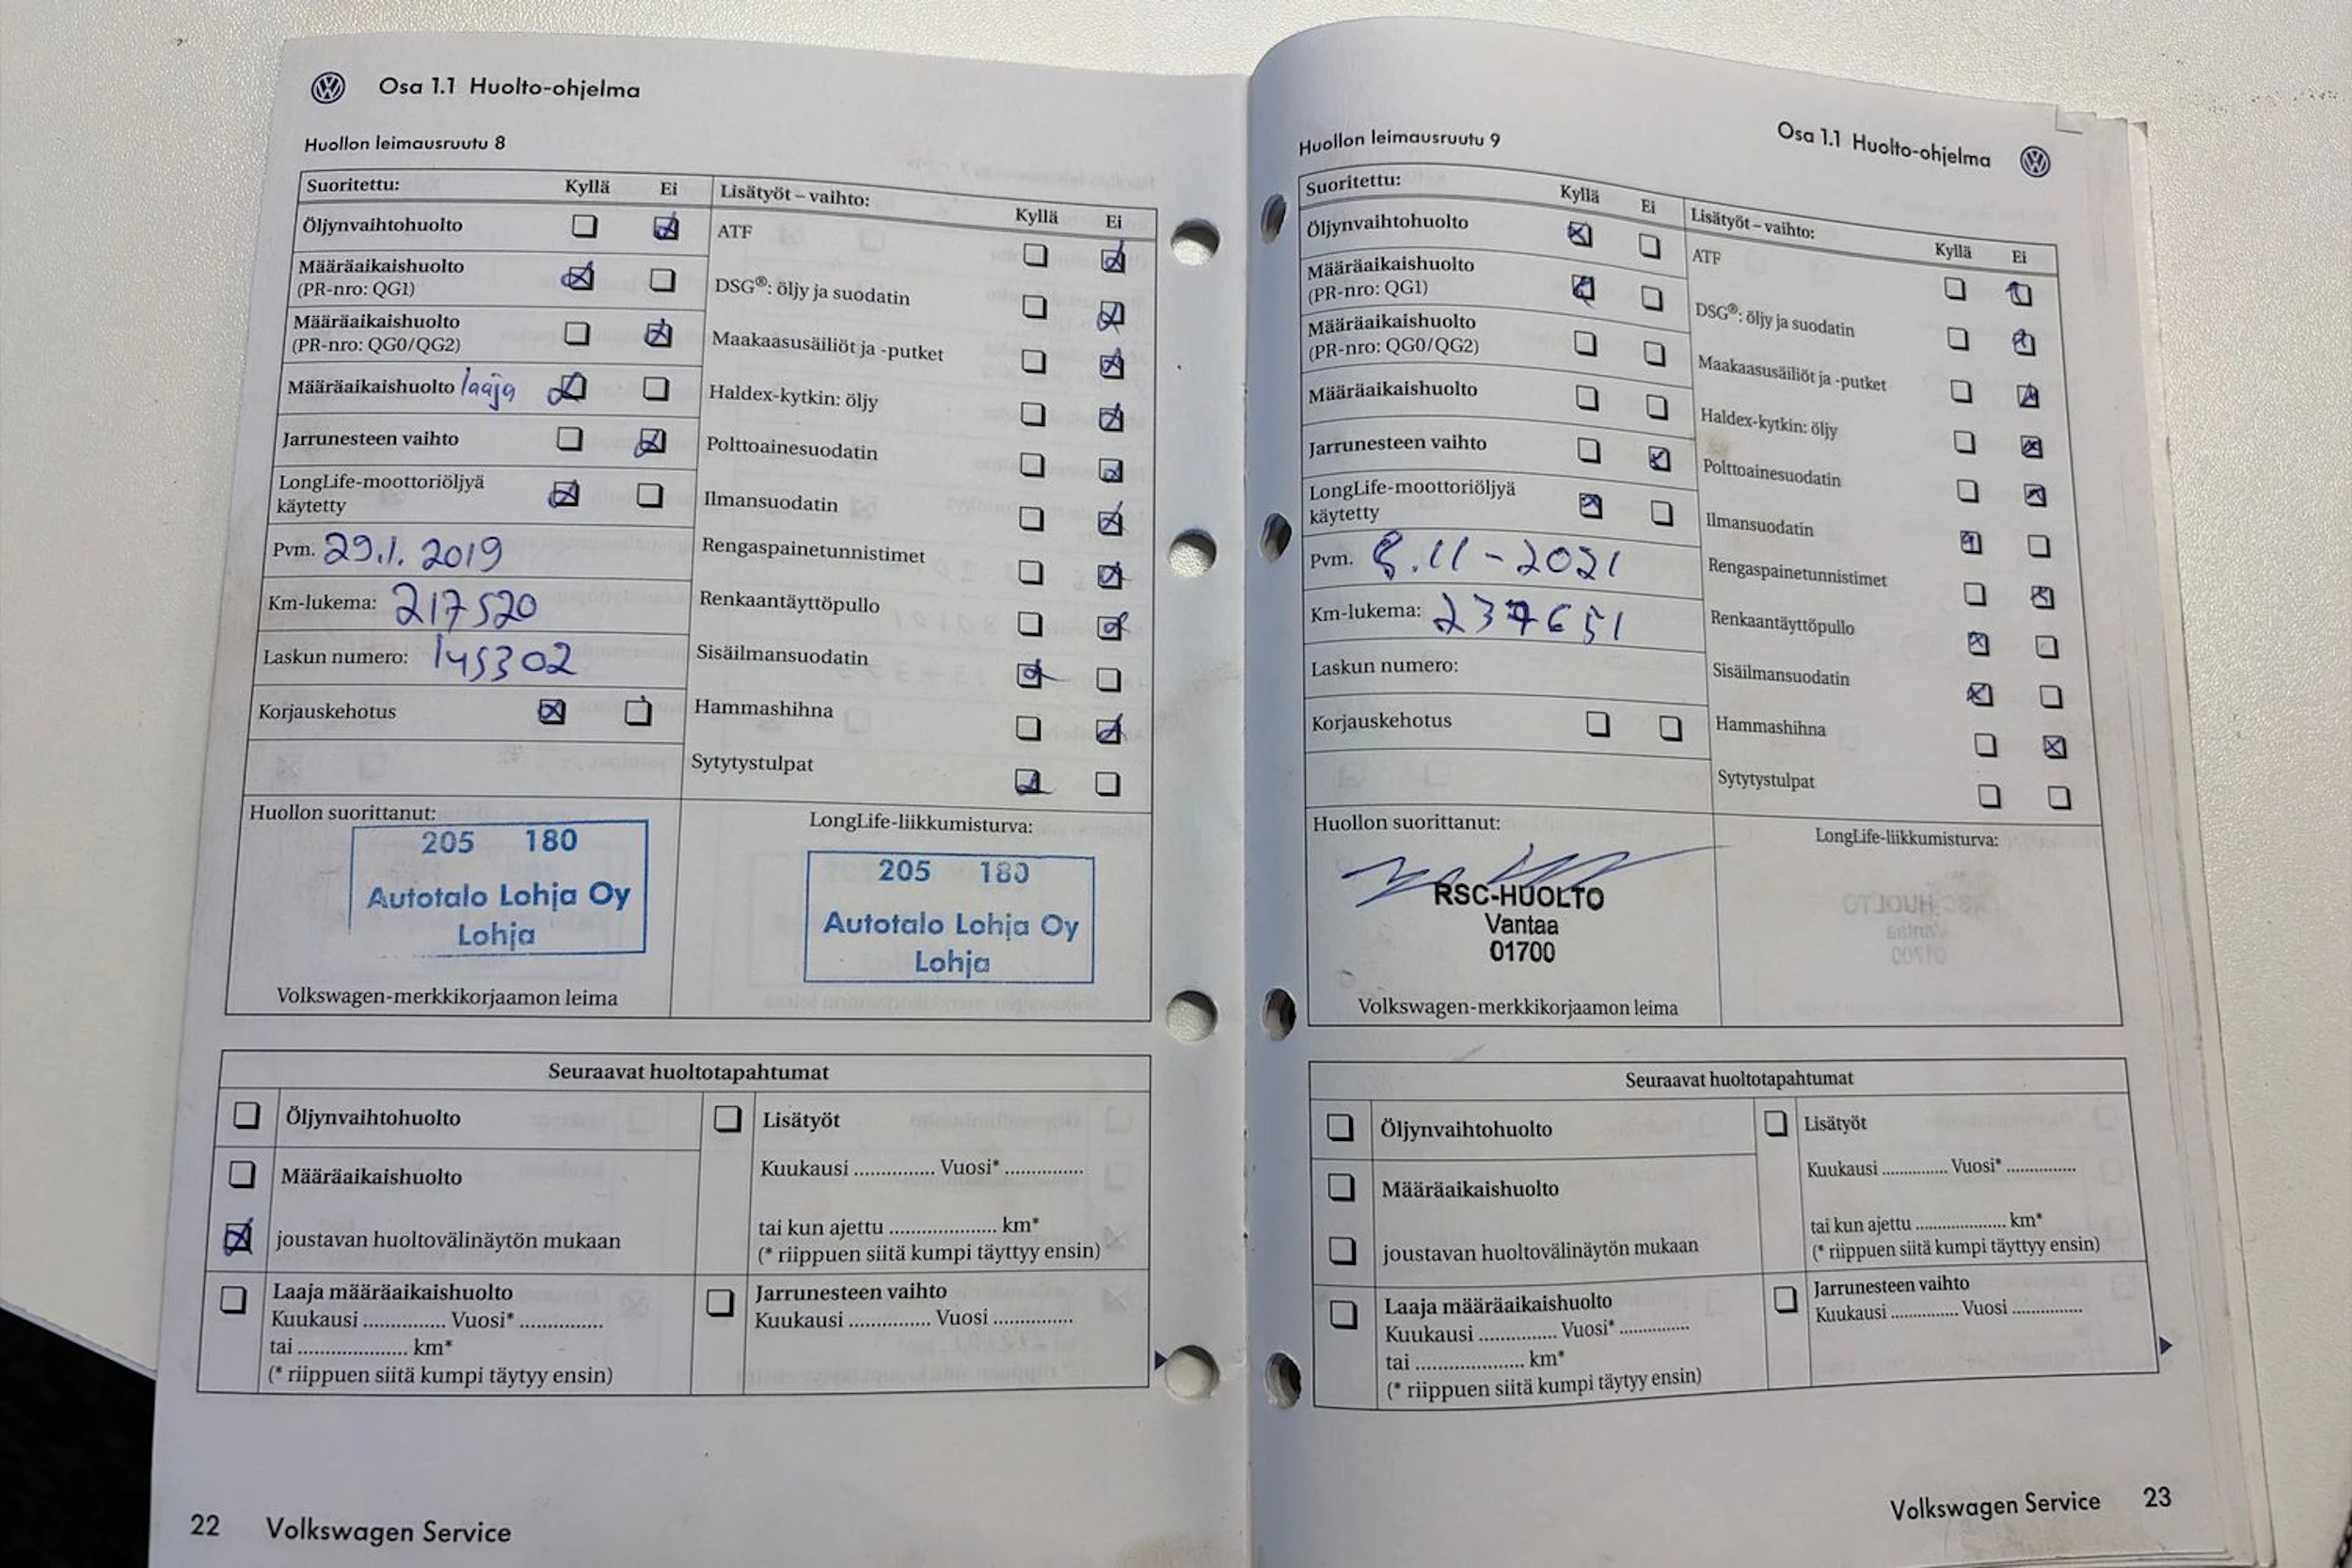 Osa 1.1 Huolto-ohjelma
Huollon leimausruutu 8
Suoritettu: Kyllä Ei
Öljynvaihtohuolto
Määräaikaishuolto
(PR-nro: QG1)
Määräaikaishuolto
(PR-nro: QG0/QG2)
Määräaikaishuolto laaja
Jarrunesteen vaihto
LongLife-moottoriöljyä
käytetty
Pvm. 29.1. 2019
Km-lukema: 217520
Laskun numero: 145302
Korjauskehotus
Lisätyöt – vaihto:
Kyllä Ei
ATF
DSG®: öljy ja suodatin
Maakaasusäiliöt ja -putket
Haldex-kytkin: öljy
Polttoainesuodatin
Ilmansuodatin
Rengaspainetunnistimet
Renkaantäyttöpullo
Sisäilmansuodatin
Hammashihna
Sytytystulpat
Huollon suorittanut:
205 180
Autotalo Lohja Oy
Lohja
Volkswagen-merkkikorjaamon leima
LongLife-liikkumisturva:
205 180
Autotalo Lohja Oy
Lohja
Seuraavat huoltotapahtumat
Öljynvaihtohuolto
Määräaikaishuolto
joustavan huoltovälinäytön mukaan
Laaja määräaikaishuolto
Kuukausi ............... Vuosi* ...............
tai .................... km*
(* riippuen siitä kumpi täytyy ensin)
Lisätyöt
Kuukausi ............... Vuosi* ...............
tai kun ajettu .................... km*
(* riippuen siitä kumpi täyttyy ensin)
Jarrunesteen vaihto
Kuukausi ............... Vuosi ...............
22 Volkswagen Service
Osa 1.1 Huolto-ohjelma
Huollon leimausruutu 9
Suoritettu: Kyllä Ei
Öljynvaihtohuolto
Määräaikaishuolto
(PR-nro: QG1)
Määräaikaishuolto
(PR-nro: QG0/QG2)
Määräaikaishuolto
Jarrunesteen vaihto
LongLife-moottoriöljyä
käytetty
Pvm. 8.11-2021
Km-lukema: 237651
Laskun numero:
Korjauskehotus
Lisätyöt – vaihto:
Kyllä Ei
ATF
DSG®: öljy ja suodatin
Maakaasusäiliöt ja -putket
Haldex-kytkin: öljy
Polttoainesuodatin
Ilmansuodatin
Rengaspainetunnistimet
Renkaantäyttöpullo
Sisäilmansuodatin
Hammashihna
Sytytystulpat
Huollon suorittanut:
RSC-HUOLTO
Vantaa
01700
Volkswagen-merkkikorjaamon leima
LongLife-liikkumisturva:
Seuraavat huoltotapahtumat
Öljynvaihtohuolto
Määräaikaishuolto
joustavan huoltovälinäytön mukaan
Laaja määräaikaishuolto
Kuukausi ............... Vuosi* ...............
tai .................... km*
(* riippuen siitä kumpi täytyy ensin)
Lisätyöt
Kuukausi ............... Vuosi* ...............
tai kun ajettu .................... km*
(* riippuen siitä kumpi täyttyy ensin)
Jarrunesteen vaihto
Kuukausi ............... Vuosi ...............
Volkswagen Service 23